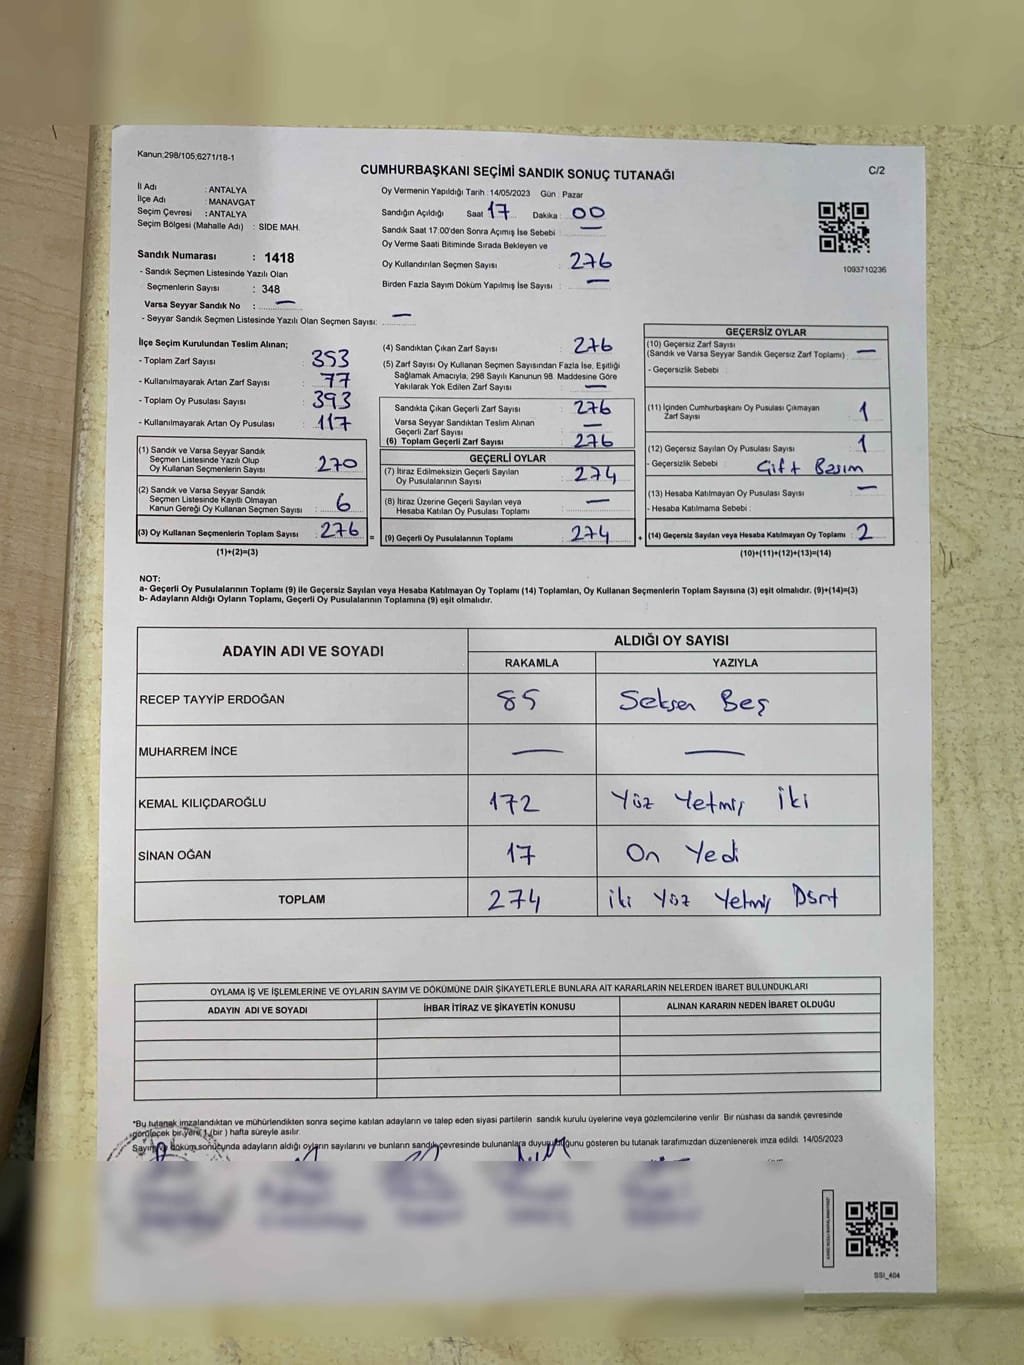 Kanun:298/105;6271/18-1
CUMHURBAŞKANI SEÇİMİ SANDIK SONUÇ TUTANAĞI
C/2
İl Adı : ANTALYA
İlçe Adı : MANAVGAT
Seçim Çevresi : ANTALYA
Seçim Bölgesi (Mahalle Adı) : SİDE MAH.
Sandık Numarası : 1418
- Sandık Seçmen Listesinde Yazılı Olan
Seçmenlerin Sayısı : 348
Varsa Seyyar Sandık No : —
- Seyyar Sandık Seçmen Listesinde Yazılı Olan Seçmen Sayısı: —
Oy Vermenin Yapıldığı Tarih : 14/05/2023 Gün : Pazar
Sandığın Açıldığı Saat 17 Dakika : 00
Sandık Saat 17:00'den Sonra Açımış İse Sebebi : —
Oy Verme Saati Bitiminde Sırada Bekleyen ve
Oy Kullandırılan Seçmen Sayısı : 276
Birden Fazla Sayım Döküm Yapılmış İse Sayısı : —
1093710236
İlçe Seçim Kurulundan Teslim Alınan;
- Toplam Zarf Sayısı 353
- Kullanılmayarak Artan Zarf Sayısı 77
- Toplam Oy Pusulası Sayısı 393
- Kullanılmayarak Artan Oy Pusulası 117
(1) Sandık ve Varsa Seyyar Sandık
Seçmen Listesinde Yazılı Olup
Oy Kullanan Seçmenlerin Sayısı 270
(2) Sandık ve Varsa Seyyar Sandık
Seçmen Listesinde Kayıtlı Olmayan
Kanun Gereği Oy Kullanan Seçmen Sayısı 6
(3) Oy Kullanan Seçmenlerin Toplam Sayısı : 276 =
(1)+(2)=(3)
(4) Sandıktan Çıkan Zarf Sayısı 276
(5) Zarf Sayısı Oy Kullanan Seçmen Sayısından Fazla İse, Eşitliği
Sağlamak Amacıyla, 298 Sayılı Kanunun 98. Maddesine Göre
Yakılarak Yok Edilen Zarf Sayısı : —
Sandıkta Çıkan Geçerli Zarf Sayısı 276
Varsa Seyyar Sandıktan Teslim Alınan
Geçerli Zarf Sayısı : —
(6) Toplam Geçerli Zarf Sayısı 276
GEÇERLİ OYLAR
(7) İtiraz Edilmeksizin Geçerli Sayılan
Oy Pusulalarının Sayısı : 274
(8) İtiraz Üzerine Geçerli Sayılan veya
Hesaba Katılan Oy Pusulası Toplamı —
(9) Geçerli Oy Pusulalarının Toplamı 274 +
GEÇERSİZ OYLAR
(10) Geçersiz Zarf Sayısı
(Sandık ve Varsa Seyyar Sandık Geçersiz Zarf Toplamı) : —
- Geçersizlik Sebebi :
(11) İçinden Cumhurbaşkanı Oy Pusulası Çıkmayan
Zarf Sayısı 1
(12) Geçersiz Sayılan Oy Pusulası Sayısı : 1
- Geçersizlik Sebebi : Çift Basım
(13) Hesaba Katılmayan Oy Pusulası Sayısı : —
- Hesaba Katılmama Sebebi :
(14) Geçersiz Sayılan veya Hesaba Katılmayan Oy Toplamı : 2
(10)+(11)+(12)+(13)=(14)
NOT:
a- Geçerli Oy Pusulalarının Toplamı (9) ile Geçersiz Sayılan veya Hesaba Katılmayan Oy Toplamı (14) Toplamları, Oy Kullanan Seçmenlerin Toplam Sayısına (3) eşit olmalıdır. (9)+(14)=(3)
b- Adayların Aldığı Oyların Toplamı, Geçerli Oy Pusulalarının Toplamına (9) eşit olmalıdır.
ADAYIN ADI VE SOYADI
ALDIĞI OY SAYISI
RAKAMLA YAZIYLA
RECEP TAYYİP ERDOĞAN 85 Seksen Beş
MUHARREM İNCE — —
KEMAL KILIÇDAROĞLU 172 Yüz Yetmiş İki
SİNAN OĞAN 17 On Yedi
TOPLAM 274 iki Yüz Yetmiş Dört
OYLAMA İŞ VE İŞLEMLERİNE VE OYLARIN SAYIM VE DÖKÜMÜNE DAİR ŞİKAYETLERLE BUNLARA AİT KARARLARIN NELERDEN İBARET BULUNDUKLARI
ADAYIN ADI VE SOYADI İHBAR İTİRAZ VE ŞİKAYETİN KONUSU ALINAN KARARIN NEDEN İBARET OLDUĞU
*Bu tutanak imzalandıktan ve mühürlendikten sonra seçime katılan adayların ve talep eden siyasi partilerin sandık kurulu üyelerine veya gözlemcilerine verilir. Bir nüshası da sandık çevresinde
görülecek bir yere 1 (bir) hafta süreyle asılır.
Sayım ve döküm sonucunda adayların aldığı oyların sayılarını ve bunların sandık çevresinde bulunanlara duyurulduğunu gösteren bu tutanak tarafımızdan düzenlenerek imza edildi. 14/05/2023
SSI_404